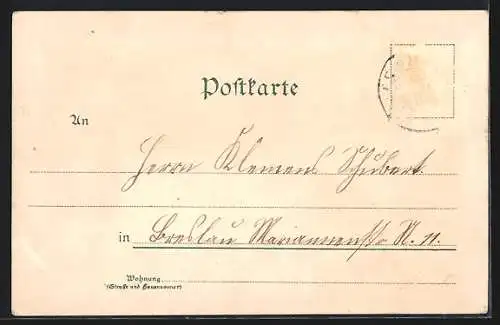 Postkarte
An
Herrn Klemens Schubert.
in Breslau Mariannenstr. N. 11.
Wohnung
(Straße und Hausnummer)